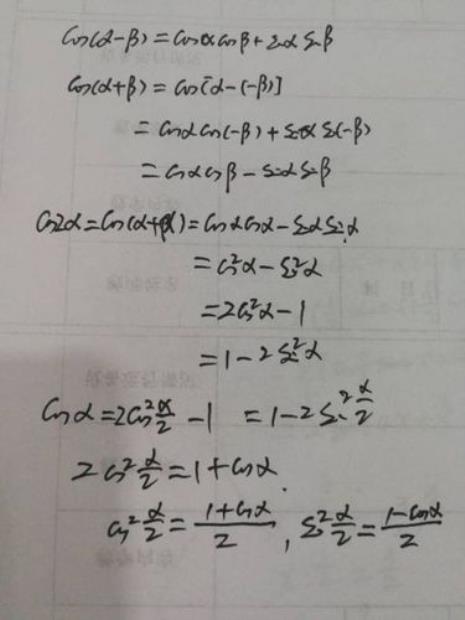 cos(α-β)=cosαcosβ+sinαsinβ
cos(α+β)=cos[α-(-β)]
=cosαcos(-β)+sinαsin(-β)
=cosαcosβ-sinαsinβ
cos2α=cos(α+α)=cosαcosα-sinαsinα
=cos²α-sin²α
=2cos²α-1
=1-2sin²α
cosα=2cos²α/2-1=1-2sin²α/2
2cos²α/2=1+cosα.
cos²α/2=(1+cosα)/2, sin²α/2=(1-cosα)/2